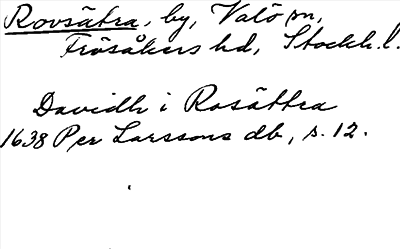 Rovsätra, by, Valö sn,
Frösåkers hd, Stockh. l.
Davidh i Rosättra
1638 Per Larssons db, s. 12.